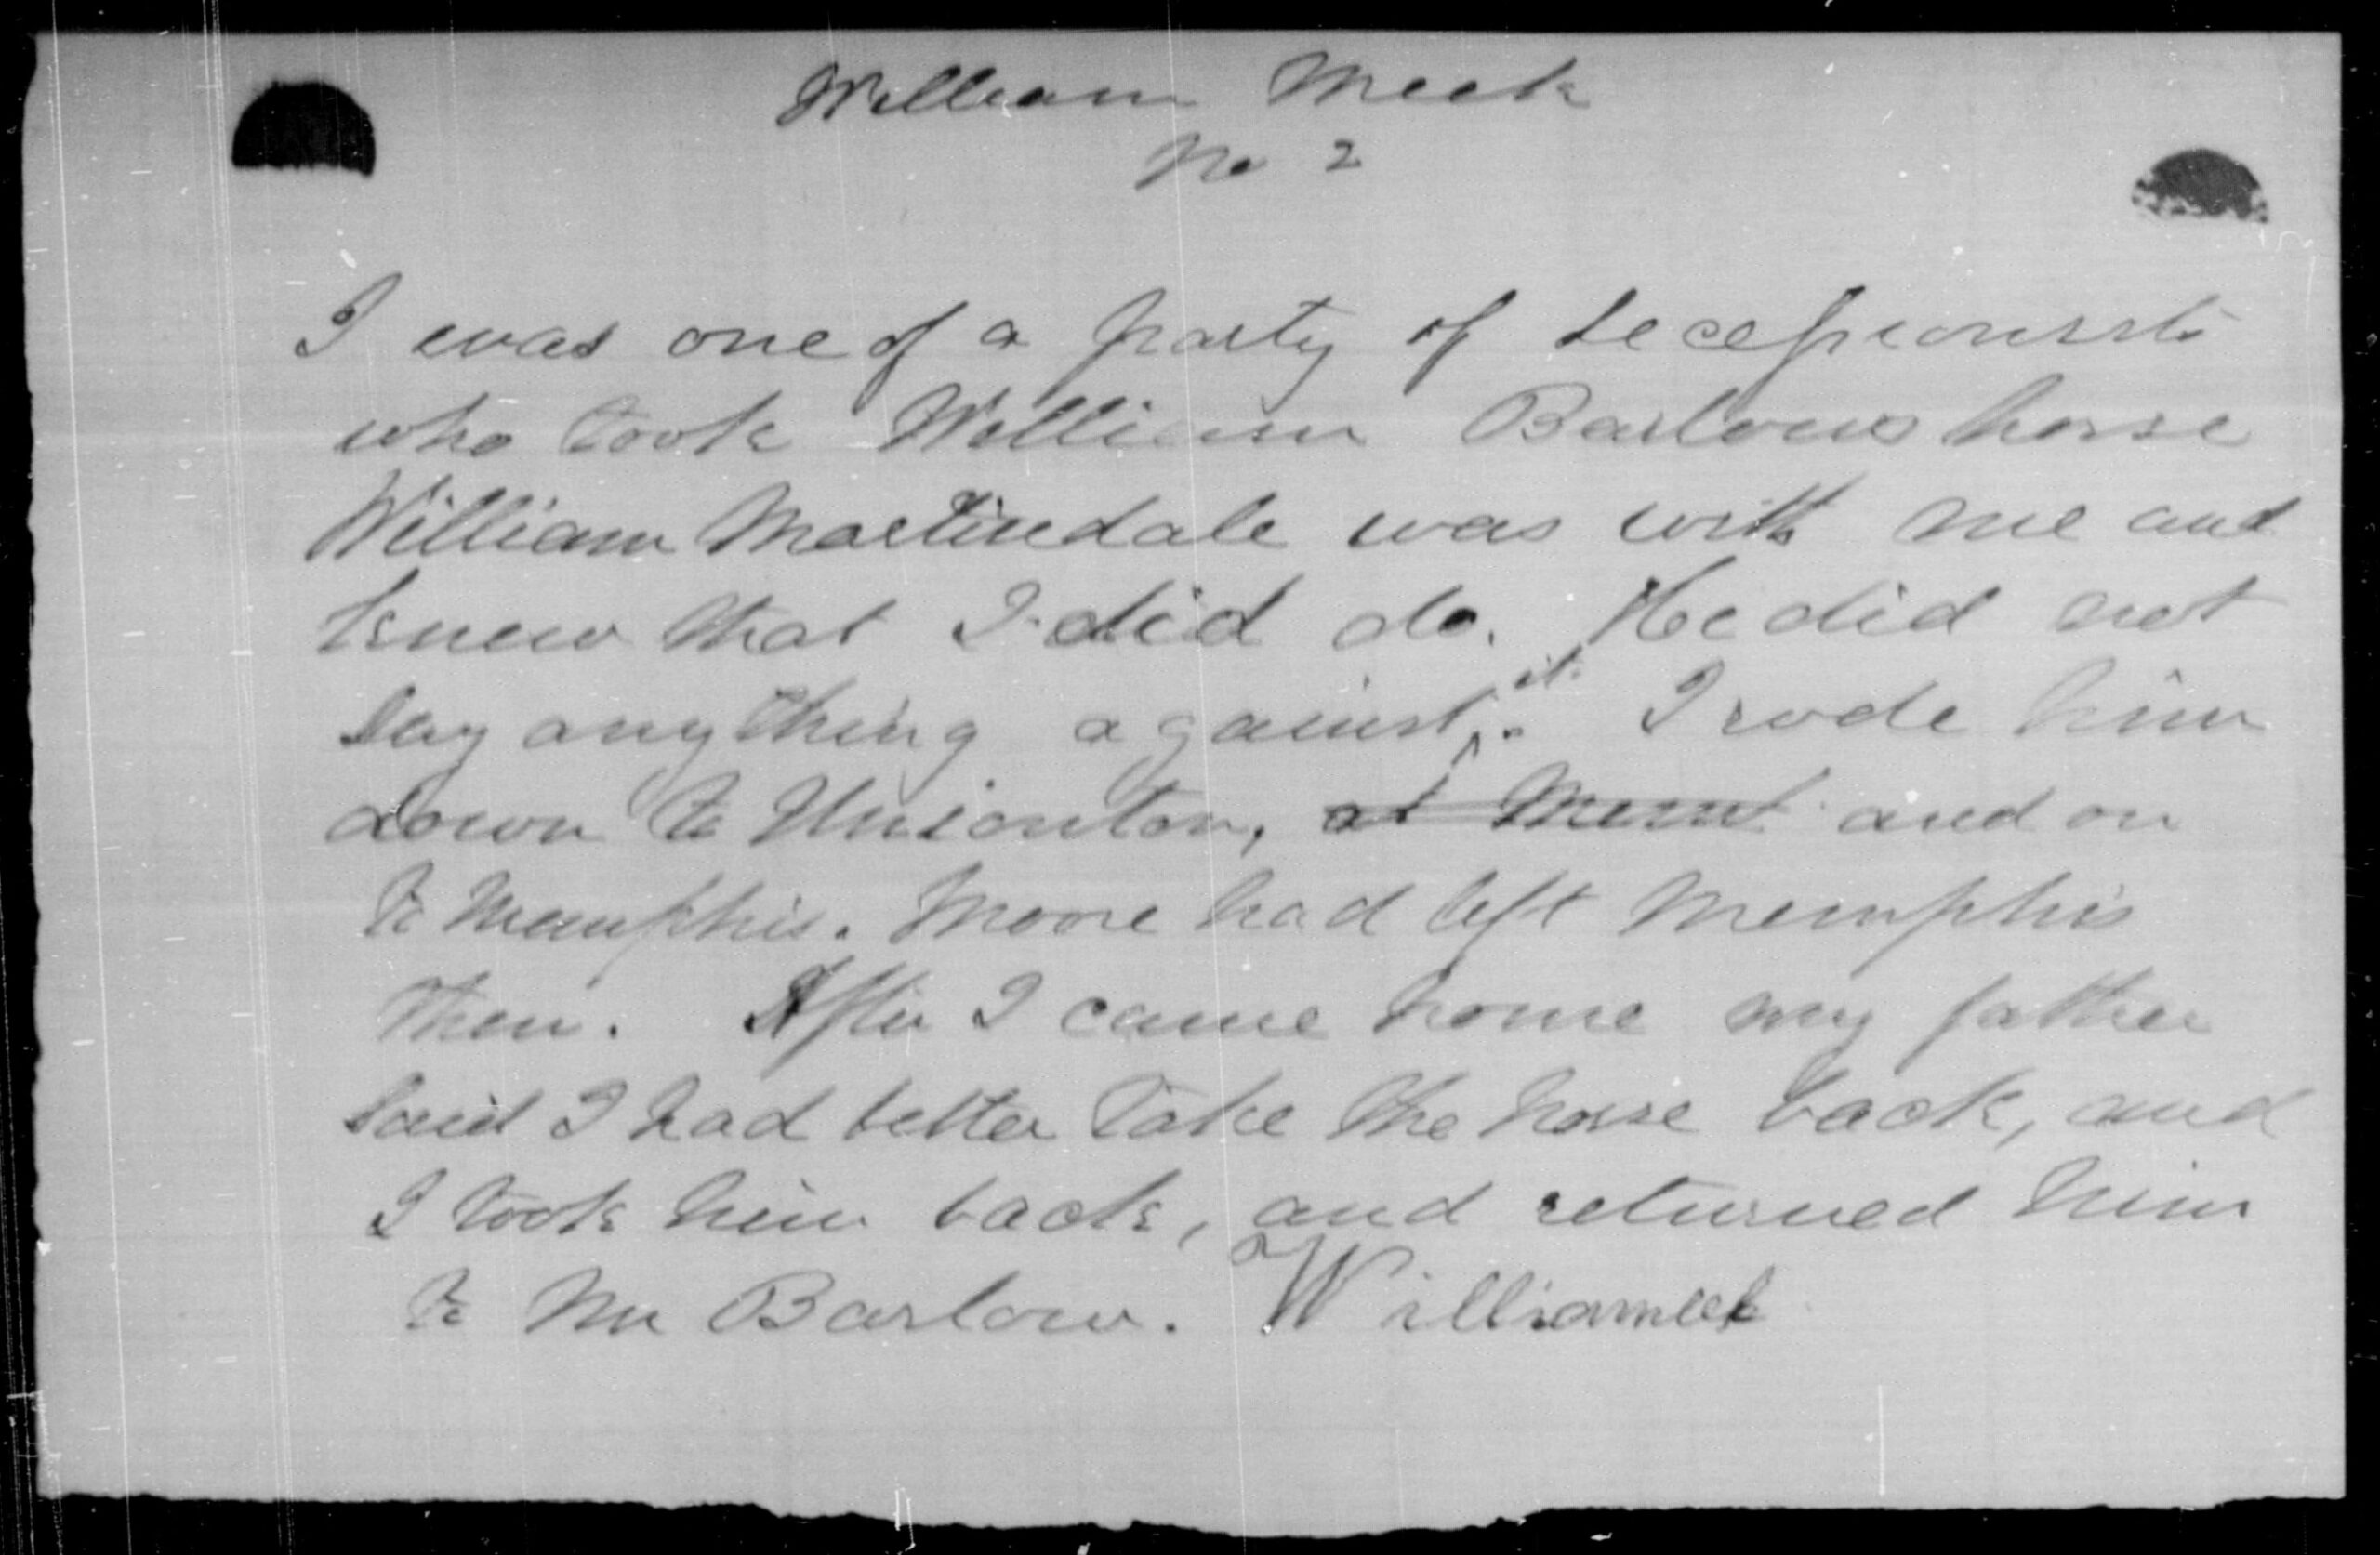 William Meek
No 2
I was one of a party of Secessionists
who took William Barlows horse
William Martindale was with me and
knew that I did do. He did not
say anything against it. I rode him
down to Unionton, at Mem and on
to Memphis. Moore had left Memphis
then. After I came home my father
said I had better take the horse back, and
I took him back, and returned him
to Mr Barlow. Williameek